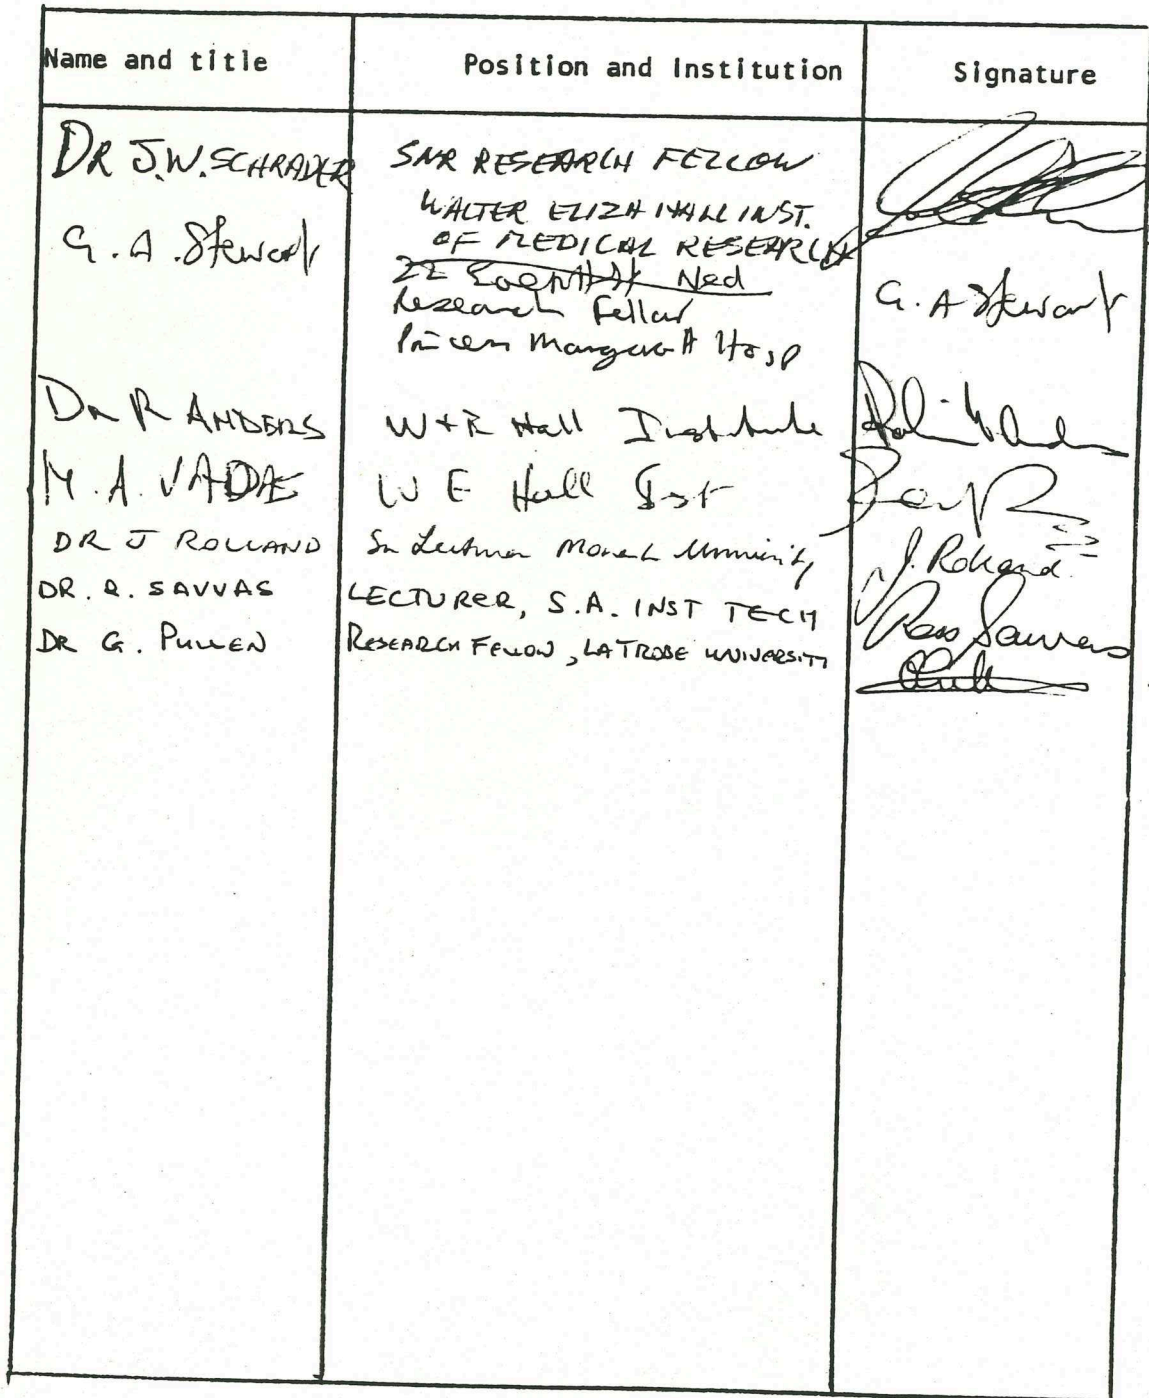 Name and title Position and Institution Signature
DR J.W. SCHRADER SNR RESEARCH FELLOW
WALTER ELIZA HALL INST.
OF MEDICAL RESEARCH
G. A. Stewart 22 Ned
Research Fellow G. A Stewart
Princess Margaret Hosp
Dr R ANDERS W + E Hall Institute
M. A. VADAS W E Hall Inst
DR J ROLLAND Sn Lecturer Monash University J. Rolland
DR. R. SAVVAS LECTURER, S.A. INST TECH Ross Savvas
DR G. PULLEN RESEARCH FELLOW, LA TROBE UNIVERSITY